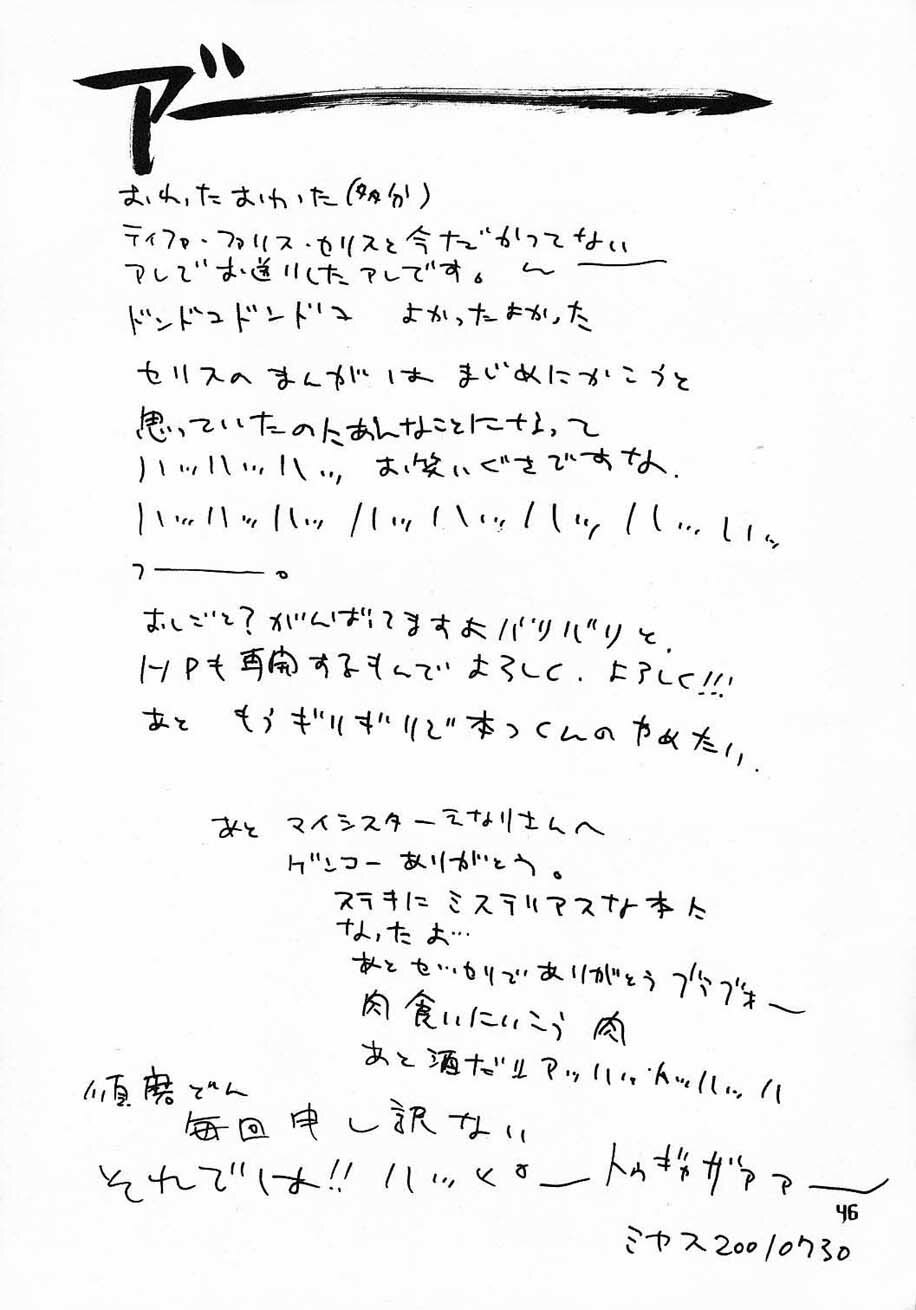 ア゛ー
おわったおわった(多分)
ティファ・ファリス・セリスと今だかつてない
アレでお送りしたアレです。 〜
ドンドコドンドコ よかったよかった
セリスのまんがは まじめにかこうと
思っていたのにあんなことになって
ハッハッハッ, お笑いぐさですな.
ハッハッハッハッハッハッハッハッ
フー。
おしごと?がんばってますよバリバリと,
HPも再開するもんでよろしく.よろしく!!!
あと もうギリギリで本つくんのやめたい.
あと マイシスターえなりさんへ
ゲンコーありがとう。
ステキにミステリアスな本に
なったよ…
あと ありがとう
肉食いにいこう 肉
あと酒だ!! アッハッハッハッハ
順磨どん
毎回申し訳ない
それでは!! ハッピーートゥギャザァァー
46
ミヤス20010730